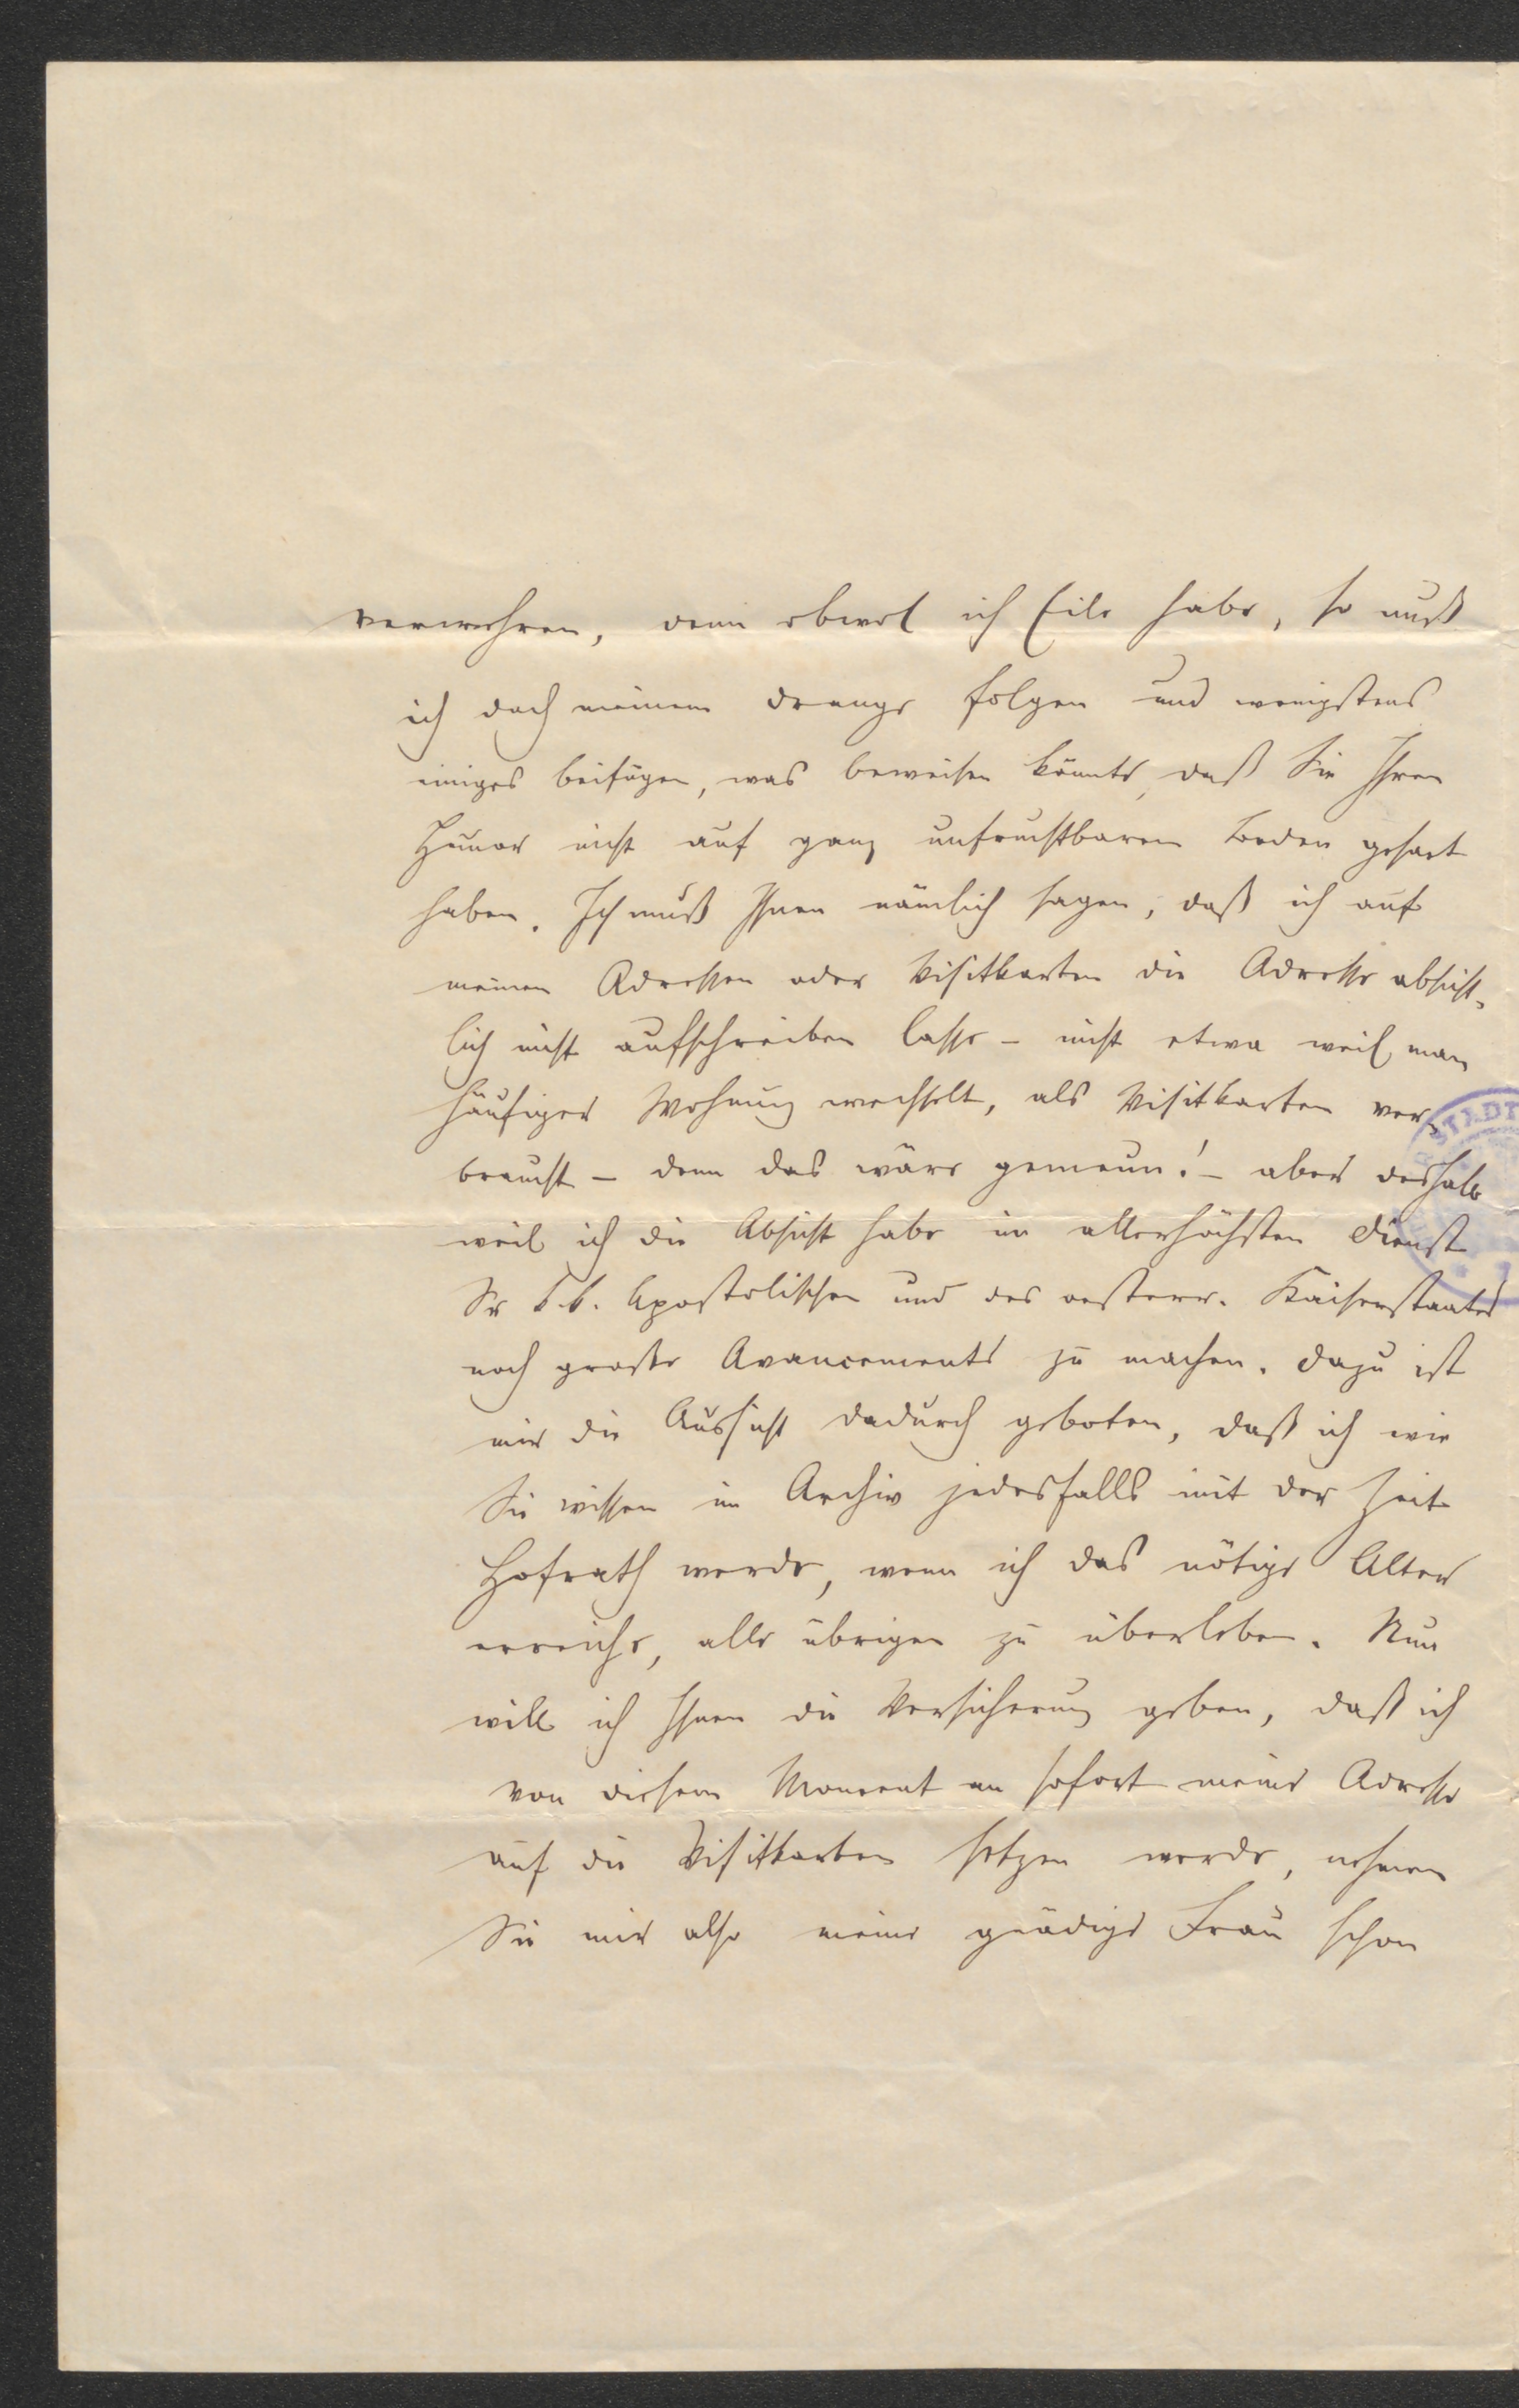 verwahren, denn obwol ich Eile habe, so muß
ich doch meinem Drange folgen und wenigstens
einiges beifügen, was beweisen könnte, daß Sie Ihren
Humor nicht auf ganz unfruchtbaren Boden gesaet
haben. Ich muß Ihnen nämlich sagen, daß ich auf
meinen Adressen oder Visitkarten die Adresse absicht-
lich nicht aufschreiben lasse – nicht etwa weil man
häufiger Wohnung wechselt, als Visitkarten ver-
braucht – denn das wäre gemeun! – aber deshalb
weil ich die Absicht habe im allerhöchsten Dienst
Sr k.k. Apostolischen und des oesterr. Kaiserstaates
noch große Avancements zu machen. Dazu ist
mir die Aussicht dadurch geboten, daß ich wie
Sie wissen im Archiv jedesfalls mit der Zeit
Hofrath werde, wenn ich das nötige Alter
erreiche, alle übrigen zu überleben. Nun
will ich Ihnen die Versicherung geben, daß ich
von diesem Moment an sofort meine Adresse
auf die Visitkarten setzen werde, nehmen
Sie mir also meine gnädige Frau schon
STADT